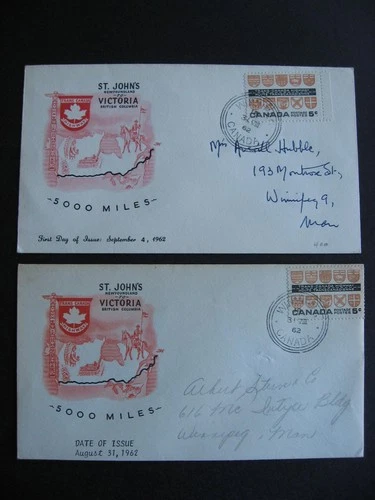 ST. JOHN'S
NEWFOUNDLAND
TO
VICTORIA
BRITISH COLUMBIA
TRANS CANADA
5000 MILES
First Day of Issue: September 4, 1962
CANADA 5¢
62
CANADA
Mrs Hubble,
193 Montrose St.,
Winnipeg 9,
Man
ST. JOHN'S
NEWFOUNDLAND
TO
VICTORIA
BRITISH COLUMBIA
5000 MILES
DATE OF ISSUE
August 31, 1962
CANADA 5¢
31
62
CANADA
Co
616 Mc Intyre Bldg
Winnipeg, Man